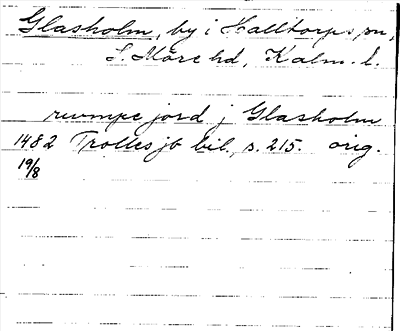 Glasholm, by i Halltorps sn,
S. Möre hd, Kalm. l.
rwmpe jord j Glasholm
1482 Trolles jb bil., s. 215. orig.
19/8